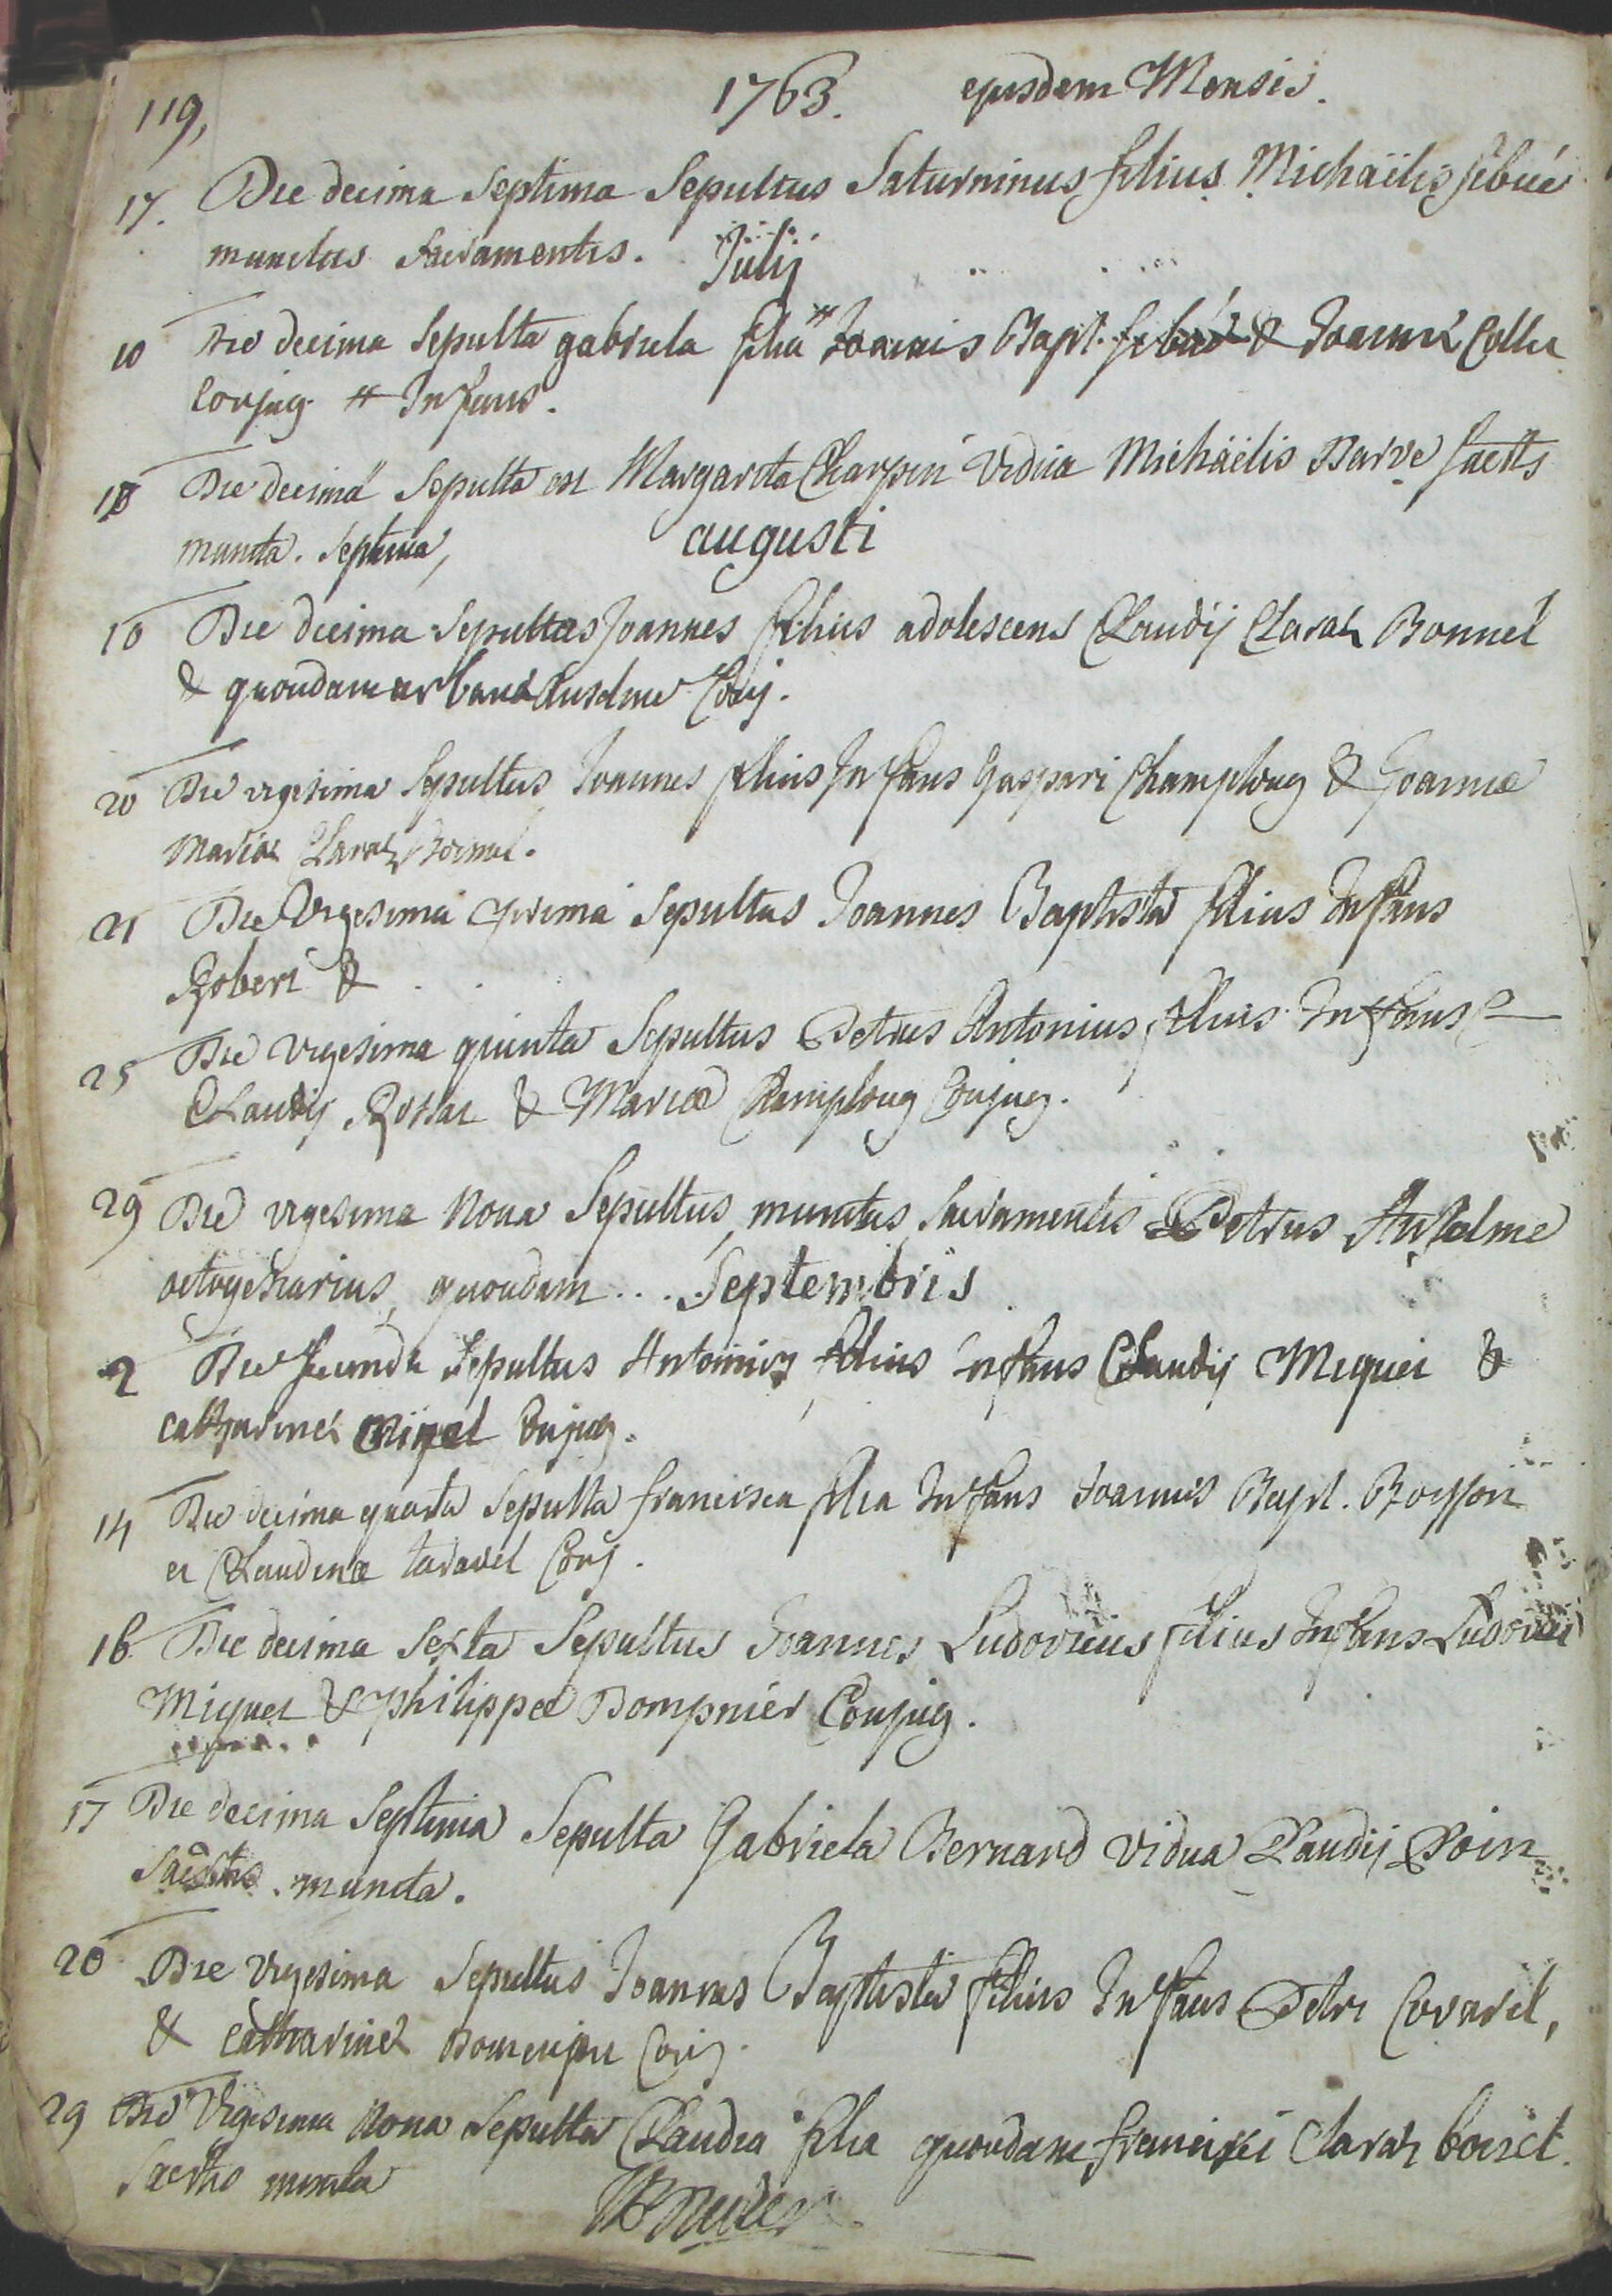 119, 1763. ejusdem Mensis.
17. Die decima Septima Sepultus Saturninus filius Michaëlis
munitus Sacramentis. Julij
10 Die decima Sepulta gabriela filia Joannis Bapt. & Joannæ Collet
Conjug. # Infans.
18 Die decima Sepulta est Margarita Charpin Vidua Michaëlis Darve Sactis
munita. Septima,
augusti
10 Die decima Sepultus Joannes filius adolescens Claudij Claraz Bonnel
& quondam urbanæ Anselme Conj.
20 Die vigesima Sepultus Joannes filius Infans Gaspari Champlong & Joannæ
Mariæ Claraz Bonnel.
21 Die Vigesima prima Sepultus Joannes Baptista filius Infans
Robert & . .
25 Die vigesima quinta Sepultus Petrus Antonius filius Infans
Claudij Rossat & Mariæ Champlong Conjug.
29 Die vigesima Nona Sepultus, munitus Sacramentis Petrus Anselme
octogenarius, quondam . . . Septembris
2 Die Secunda Sepultus Antonius filius infans Claudij Miquet &
catharinæ conjug.
14 Die decima quarta Sepulta francisca filia Infans Joannis Bapt. Bosson
et Claudinæ taravel Conj.
16 Die decima Sexta Sepultus Joannes Ludovicus filius Infans Ludovici
Miquet & philippæ Dompnier Conjug.
17 Die decima Septima Sepulta Gabriela Bernard vidua Claudij Roin
Sactis munita.
20 Die Vigesima Sepultus Joannes Baptista filius Infans Petri Covarel,
& Catharinæ Domenjon Conj.
29 Die Vigesima Nona Sepulta Claudia filia quondam francisci Claraz boiset.
Sactis munita